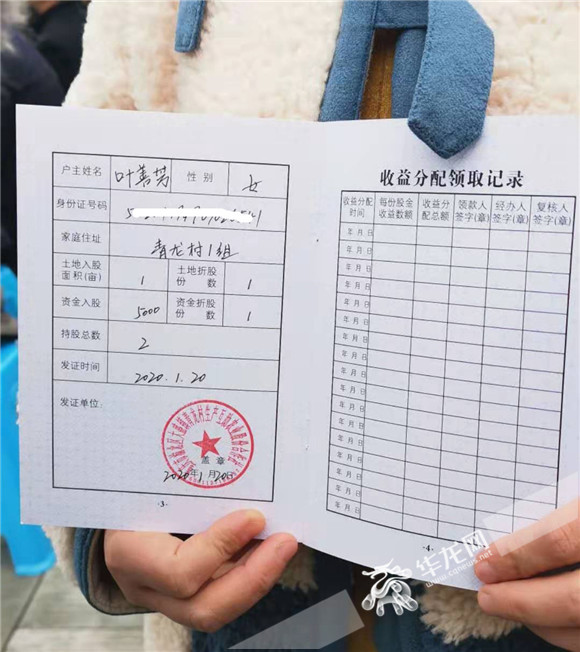 户主姓名 叶善芳 性别 女
身份证号码
家庭住址 青龙村1组
土地入股面积(亩) 1 土地折股份数 1
资金入股 5000 资金折股份数 1
持股总数 2
发证时间 2020.1.20
发证单位:
盖章
2020年1月20日
-3-
收益分配领取记录
收益分配时间 每份股金收益数额 收益分配总额 领款人签字(章) 经办人签字(章) 复核人签字(章)
年月日
年月日
年月日
年月日
年月日
年月日
年月日
年月日
年月日
年月日
年月日
年月日
年月日
年月日
年月日
年月日
-4-
华龙网
www.cqnews.net